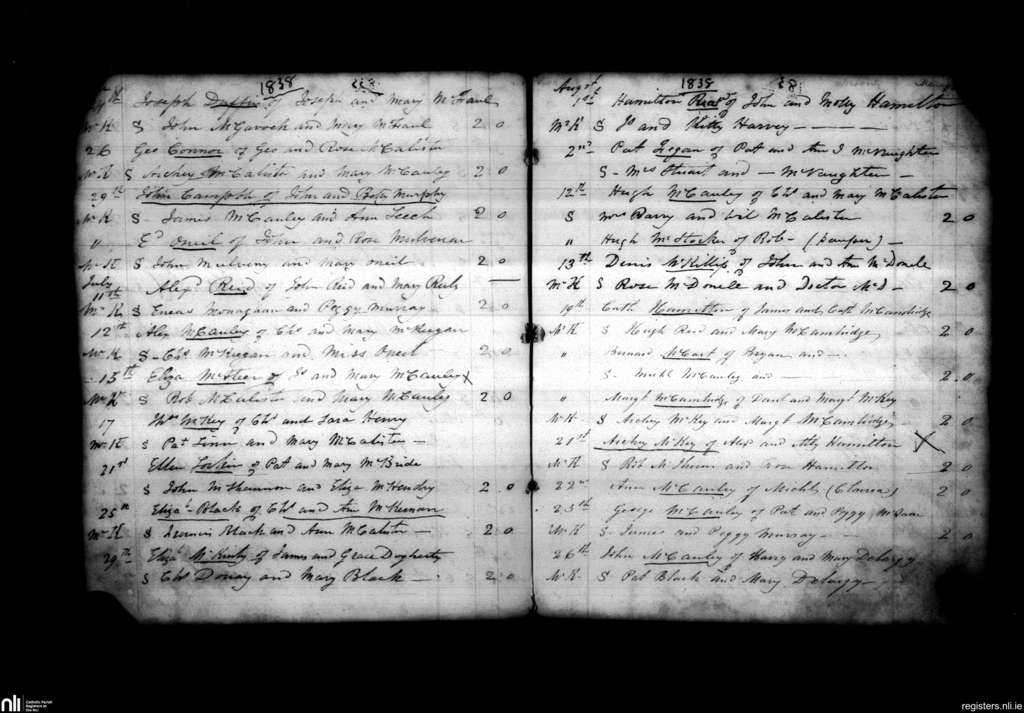 1838
24th Joseph Duffin of Joseph and Mary McFaul
McK S John McGavock and Mary McFaul 2 0
26 Geo Connor of Geo and Rose McCalister
McK S Archey McCalister and Mary McCauley 2 0
29th John Campbell of John and Betsy Murphy
McK S - James McCauley and Ann Leech 2 0
" Ed Oneil of John and Rose Mulvenna
McK S John Mulvenna and Mary Oneil 2 0
July
11th Alexr Reid of John Reid and Mary
McK S Eneas Monaghan and Peggy Murray 2 0
12th Alex McCauley of Chs and Mary McKeegan
McK S - Chs McKeegan and Miss Oneil 2 0
15th Eliza of Js and Mary McCauley X
McK S Rob McCalister and Mary McCauley 2 0
17 Thos McKey of Chs and Sara Henry
McK S Pat Linn and Mary McCalister -
21st Ellen of Pat and Mary McBride
S John McShannon and Eliza McHendry 2 0
25th Eliza - Black of Chs and Ann McKernan
McK S Dennis Black and Ann McCalister - 2 0
29th Elizh of James and Grace Dogherty
S Chs and Mary Black - 2 0
1838
Augst
1st Hamilton of John and Molly Hamilton
McK S Js and Kitty Harvey - - - -
2nd Pat of Pat and Ann J McNaughten
S - Mrs Stuart and - McNaughten -
12th Hugh McCauley of Chs and Mary McCalister
S Mrs Barry and Wil McCalister 2 0
" Hugh McStocker of Rob - (pauper) -
13th Denis McKillip of John and Ann McDonele
McK S Rose McDonele and Doctor McD - 2 0
19th Cath Hamilton of James and Cath McCambridge
McK S Hugh Reid and Mary McCambridge 2 0
" Bernard McCart of Bryan and -
S - Michl McCauley and - 2 0
" Margt McCambridge of Danl and Margt McKey
McK S Archey McKey and Margt McCambridge 2 0
21st Archey McKey of Alex and Atty Hamilton X
McK S Rob and Hamilton 2 0
22nd Ann McCauley of Michl (Clairea) 2 0
25th George McCauley of Pat and Peggy
McK S - James and Peggy Murray - - 2 0
26th John McCauley of Harry and Mary Delargy
McK - S Pat Black and Mary Delargy
nli
Catholic Parish
Registers at
the NLI
registers.nli.ie